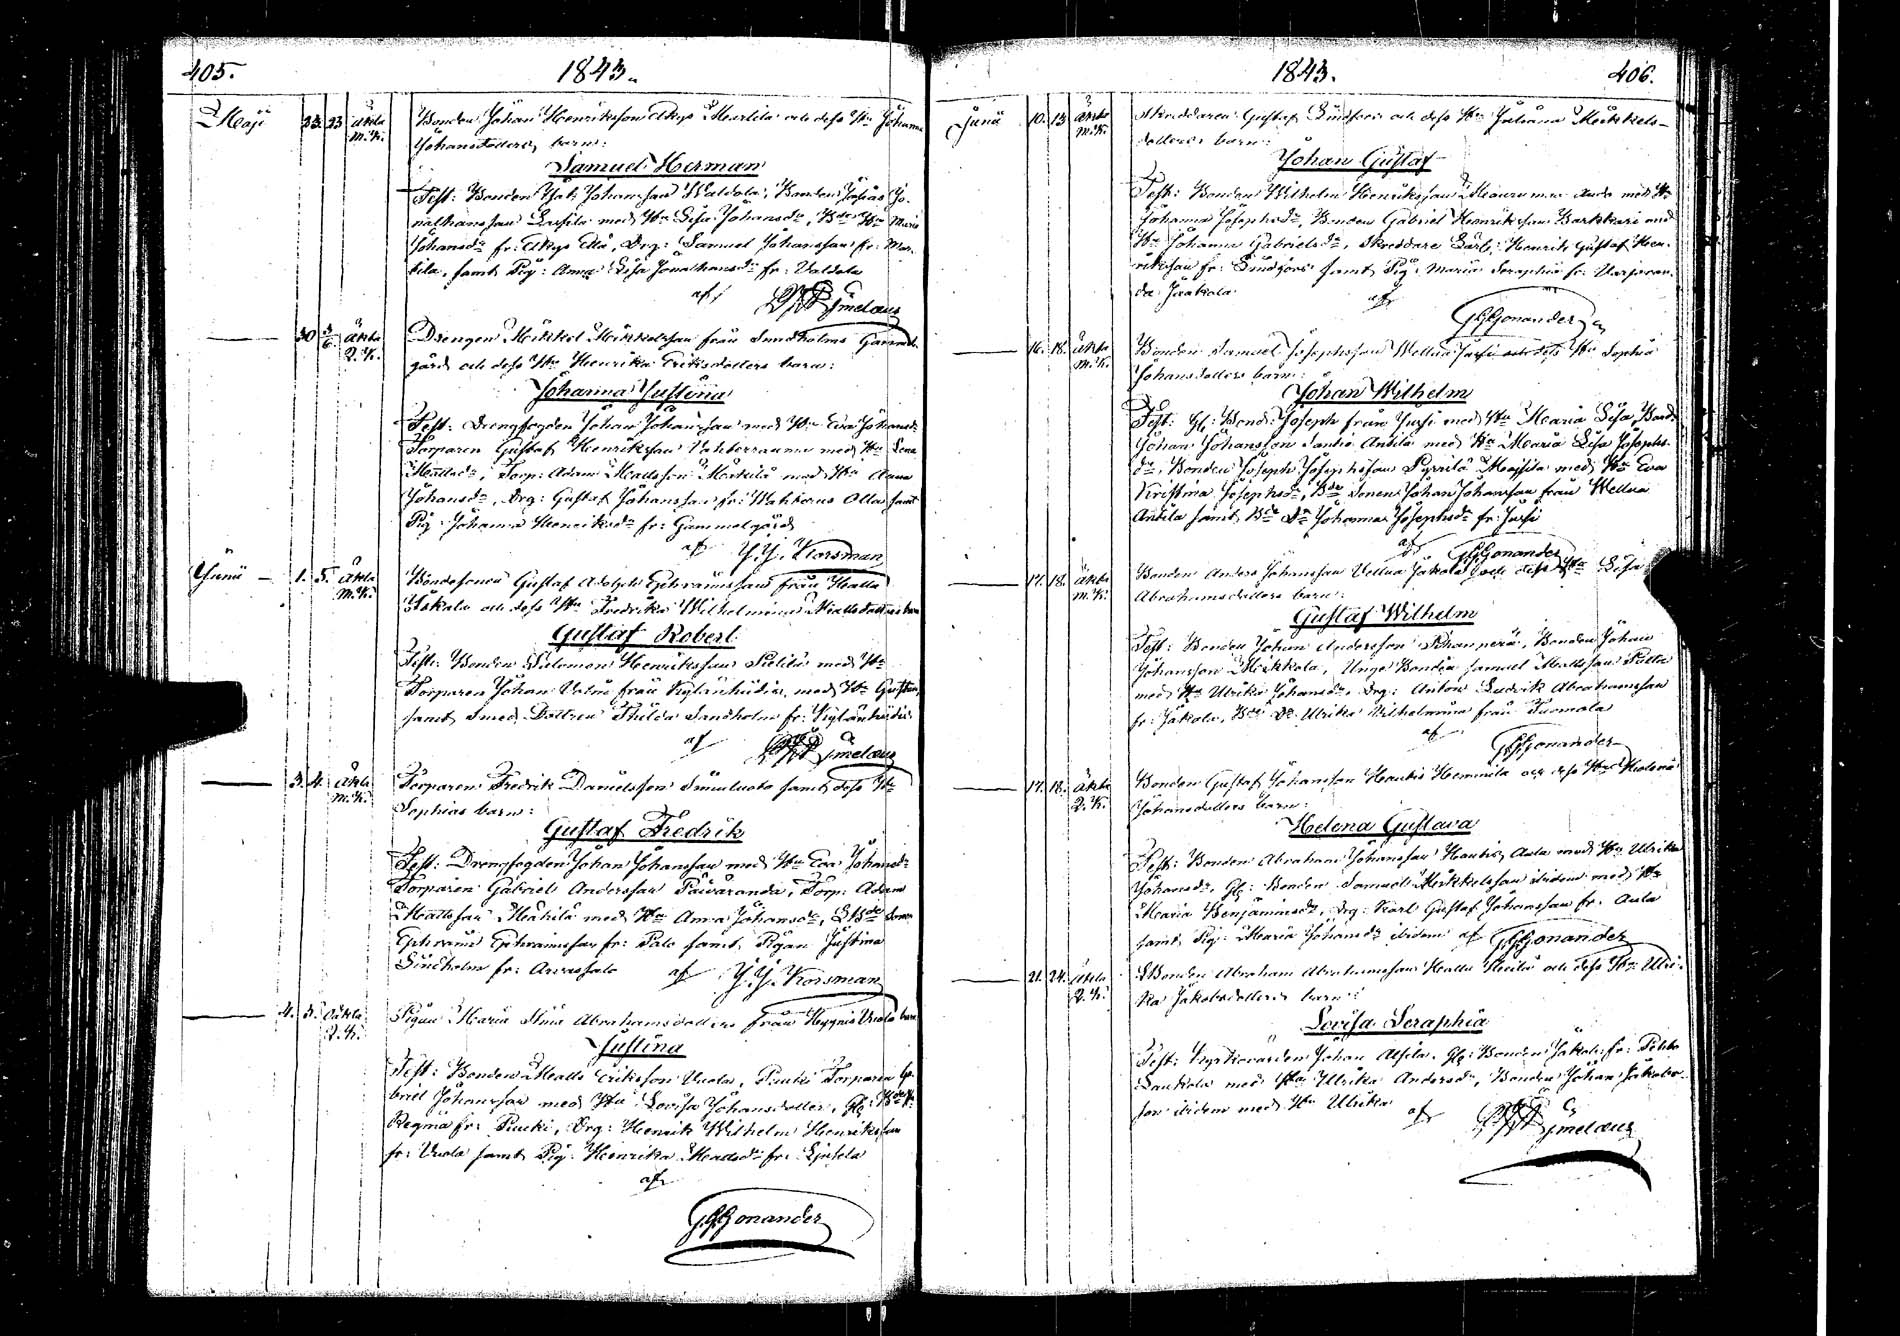 405.
1843.
Maji 23. 23 äkta Bonden Johan Henriksson Akys Marttila och dess Hu Johanna
M.K. Johansdotters barn:
Samuel Herman
Test: Bonden Isak Johansson Waldola, Bonden Josias Jo-
nathansson Lassila med Hu Lisa Johansdr, Bde Hu Maria
Johansdr fr: Akys Eka, Drg: Samuel Johansson fr: Mar-
tila, samt Pig: Anna Lisa Jonathansdr fr: Valdola
af
30 4/6 äkta Drengen Mickel Mickelsson från Sundholms Gammel-
Q.K. gård och dess Hu Henrika Eriksdotters barn:
Johanna Justina
Test: Drengfogden Johan Johansson med Hu Eva Johansdr
Torparen Gustaf Henriksson Vahterrauma med Hu Lena
Mattsdr, Torp: Adam Mattsson Mäkilä med Hu Anna
Johansdr, Drg: Gustaf Johansson fr: Wahterus Olla samt
Pig Johanna Henriksdr fr: Gammelgård
af J.J. Korsman
Junii 1. 5. äkta Bondesonen Gustaf Adolph Ephraimsson från Hallu
M.K. Iskala och dess Hu Fredrika Wilhelmina Mattsdotters barn
Gustaf Robert
Test: Bonden Salomon Henriksson med Hu
Torparen Johan från Kylänhidus, med Hu Gustava,
samt Smed Dottren Thilda Sandholm fr: Kylänhidus
af
3. 4. äkta Torparen Fredrik Danielsson samt dess Hu
M.K. Sophias barn:
Gustaf Fredrik
Test: Drengfogden Johan Johansson med Hu Eva Johansdr
Torparen Gabriel Andersson Päiväranda, Torp: Adam
Mattsson Mäkilä med Hu Anna Johansdr, Bde Sonen
Ephraim Ephraimsson fr: Palo samt Pigan Justina
Sindholm fr: Arvassalo af J.J. Korsman
4. 5. Oäkta Pigan Maria Stina Abrahamsdotters från Hypnis Uvola barn
Q.K. Justina
Test: Bonden Matts Eriksson Uvola, Puuki Torparen Ga-
briel Johansson med Hu Lovisa Johansdotter, Gl: Bde Hu
Regina fr: Puuki, Drg: Henrik Wilhelm Henriksson
fr: Uvola samt Pig: Henrika Mattsdr fr:
af
G.G.Gonander
1843.
406.
Junii 10. 13 äkta Skräddaren Gustaf Lindfors och dess Hu Juliana Mickels-
M.K. dotters barn:
Johan Gustaf
Test: Bonden Wilhelm Henriksson med Hu
Johanna Josephsdr, Bonden Gabriel Henriksson Barkkari med
Hu Johanna Gabrielsdr, Skräddare Lärl: Henrik Gustaf Hen-
riksson fr: Lindfors samt Pig: Maria Seraphia fr: Varjoran-
da Jaakola
af
G.G.Gonander
16. 18. äkta Bonden Samuel Josephsson Wellua Jussi och dess Hu Sophia
M.K. Johansdotters barn:
Johan Wilhelm
Test: Gl: Bond: Joseph från Jussi med Hu Maria Lisa, Bond:
Johan Johansson Santio Antila med Hu Maria Lisa Josephs-
dr, Bonden Joseph Josephsson Pyrrilä Majsila med Hu Eva
Kristina Josephsdr, Bde Sonen Johan Johansson från Wellua
Antila samt Bde Dr Johanna Josephsdr fr: Jussi
af G.G.Gonander
17. 18. äkta Bonden Anders Johansson Vellua Jakola och dess Hu Lisa
M.K. Abrahamsdotters barn:
Gustaf Wilhelm
Test: Bonden Johan Andersson, Bonden Johan
Johansson Mikkola, Unge Bonden Samuel Mattsson
med Hu Ulrika Johansdr, Drg: Anton Ludvik Abrahamsson
fr: Jakola, Bde Dr Ulrika Wilhelmina från Tuomola
af
G.G.Gonander
17. 18. äkta Bonden Gustaf Johansson Hautis Hemmilä och dess Hu Helena
Q.K. Johansdotters barn:
Helena Gustava
Test: Bonden Abraham Johansson Hautis Aula med Hu Ulrika
Johansdr, Gl: Bonden Samuel Mickelsson ibidem med Hu
Maria Benjaminsdr, Drg: Karl Gustaf Johansson fr: Aula
samt Pig: Maria Johansdr ibidem af G.G.Gonander
21. 24. äkta Bonden Abraham Abrahamsson Hallu Heikilä och dess Hu Ulri-
Q.K. ka Jakobsdotters barn:
Lovisa Seraphia
Test: Kyrkovärden Johan Alsila, Gl: Bonden Jakob fr:
Laukola med Hu Ulrika Andersdr, Bonden Johan Jakobs-
son ibidem med Hu Ulrika
af